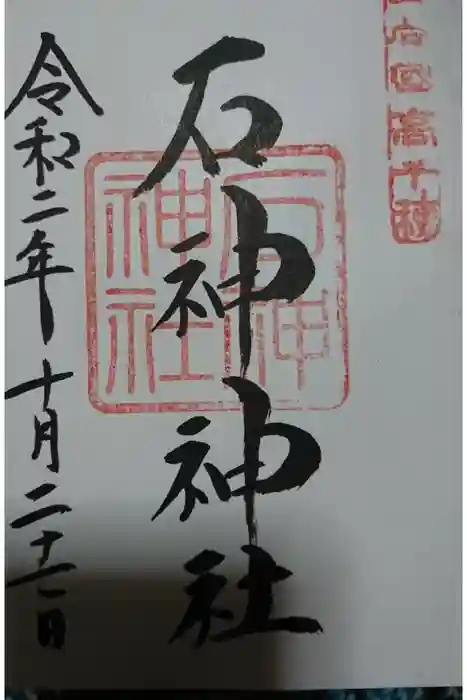 高千穂
石神神社
石神
神社
令和二年十月二十一日